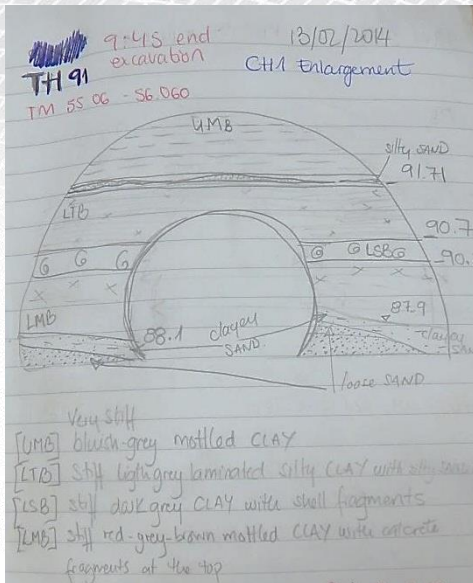 9:45 end
excavation
13/02/2014
TH 91
CH1 Enlargement
TM 55 06 - 56.060
UMB
silty SAND
91.71
LTB
90.7
G G G
G G LSB G
90.
LMB
88.1
clayey
SAND
87.9
clayey
loose SAND
Very stiff
[UMB] bluish-grey mottled CLAY
[LTB] Stiff ligth grey laminated silty CLAY with silty sand
[LSB] stiff dark grey CLAY with shell fragments
[LMB] stiff red-grey-brown mottled CLAY with concrete
fragments at the top